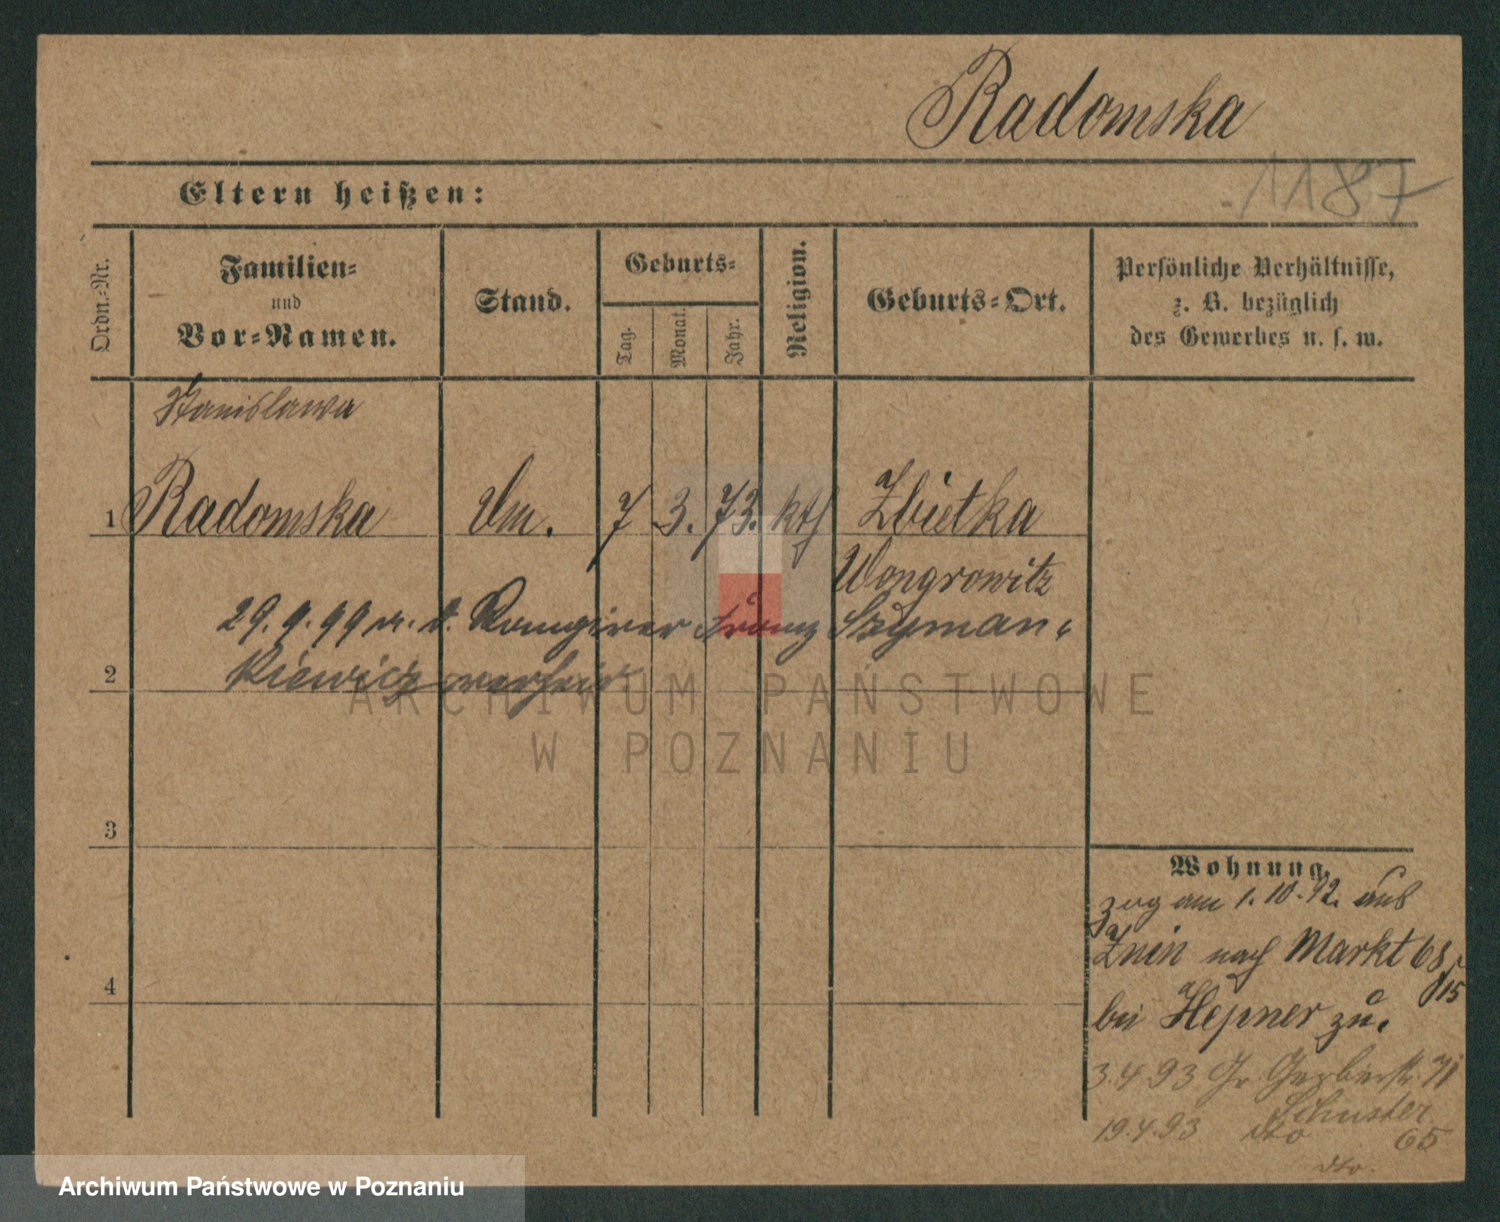 Radomska
1187
Eltern heißen:
Ordn.-Nr.
Familien-
und
Vor-Namen.
Stand.
Geburts-
Tag.
Monat.
Jahr.
Religion.
Geburts-Ort.
Persönliche Verhältnisse,
z. B. bezüglich
des Gewerbes u. s. w.
Stanislawa
1 Radomska Um. 7 3. 73. kth Zbietka
Wongrowitz
29. 9. 99 m. d. Franz Szyman-
2 kiewicz verheir
ARCHIWUM PAŃSTWOWE
W POZNANIU
3
Wohnung.
zog am 1. 10. 92. aus
Znin nach Markt 68
15
4
bei Hepner zu.
3.4.93 Gr Gerberstr. 71
Schuster
19.4.93 dto 65
dto.
Archiwum Państwowe w Poznaniu